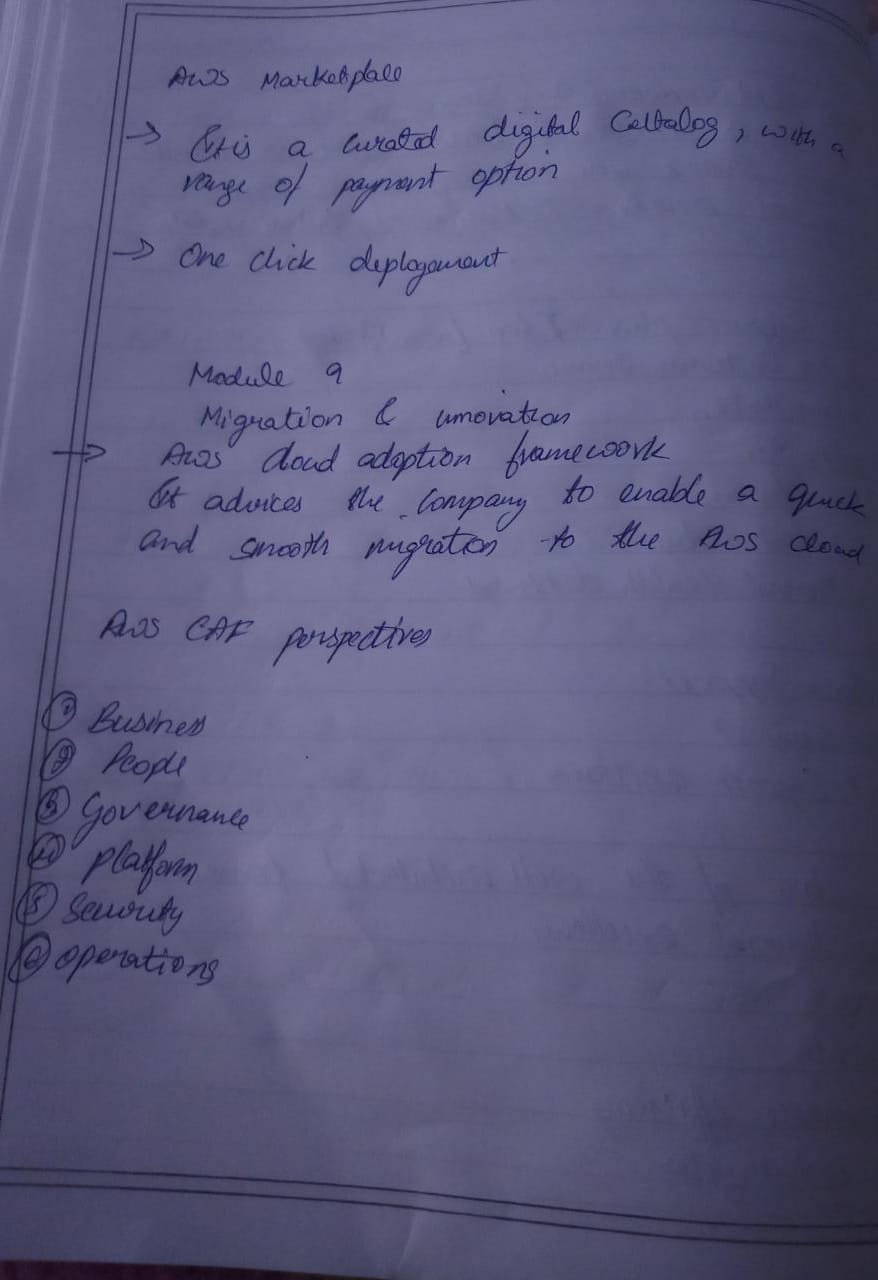 AWS Marketplace
→ It is a curated digital Caltalog, with a
range of payment option
→ One click deplogement
Module 9
Migration & innovation
→ AWS Cloud adoption framework
It advices the company to enable a quick
and smooth migration to the AWS cloud
AWS CAF perspectives
① Business
② People
③ Governance
④ Platform
⑤ Security
⑥ operations